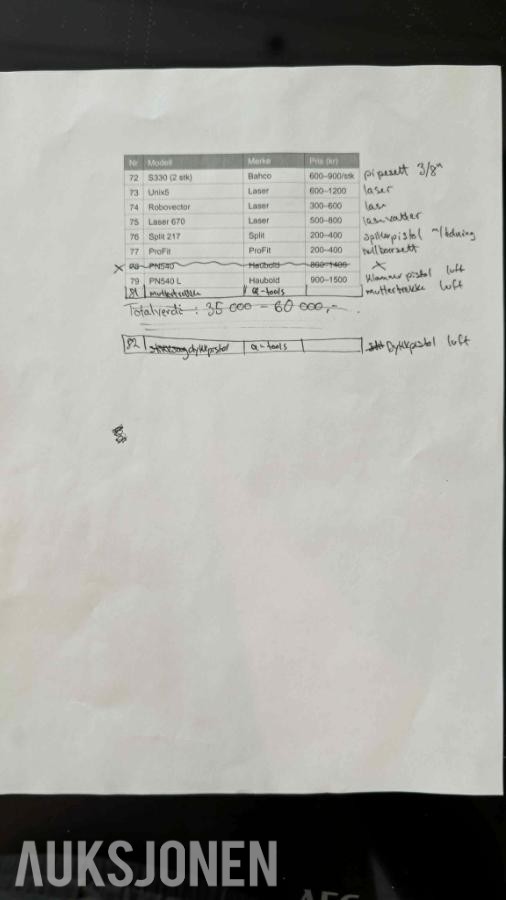 Nr Modell Merke Pris (kr)
72 S330 (2 stk) Bahco 600–900/stk pipesett 3/8"
73 Unix5 Laser 600–1200 laser
74 Robovector Laser 300–600
75 Laser 670 Laser 500–800 laservatter
76 Split 217 Split 200–400
77 ProFit ProFit 200–400 hullborsett
x PN540 Haubold 800–1400 x
79 PN540 L Haubold 900–1500 Klammerpistol luft
81 muttertrekke a-tools muttertrekke luft
Totalverdi : 35 000 – 60 000,-
82 dykkpistol a-tools Dykkpistol luft
AUKSJONEN
AEG